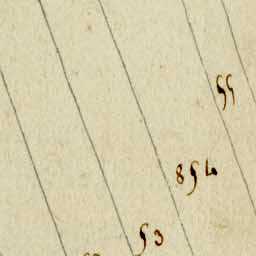 55
854
53